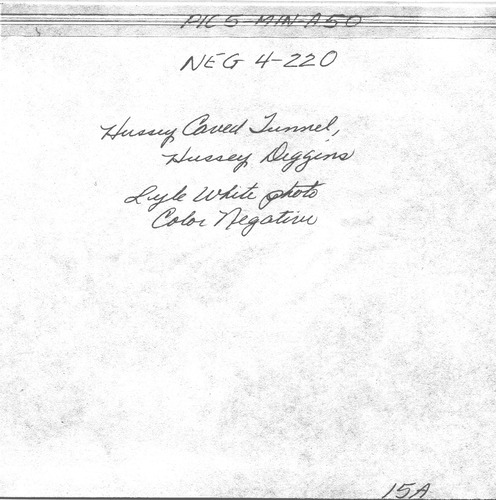 PICS-MIN-A50
NEG 4-220
Hussey Caved Tunnel,
Hussey Diggins
Lyle White photo
Color Negative
15A